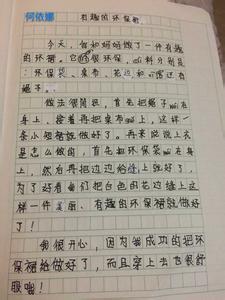 何依娜
有趣的环保裙
今天,我和妈妈做了一件有趣
的环裙。它的很环保,zái料分别是
:环保袋、桌布、花边和
绳子。
做法很简单,首先把绳子
身上,接着再把桌布 上,这样一
条小短裙就做好了。再来说说上衣
是怎么做的:首先把环保袋 在身
上,然后再把边边给缝上就好了,
为了好看我们把白色的花边缝上这
样一件美丽、有趣的环保裙就做好
了!
我很开心,因为我成功的把环
保裙给做好了,而且穿上去也很舒
服哦!